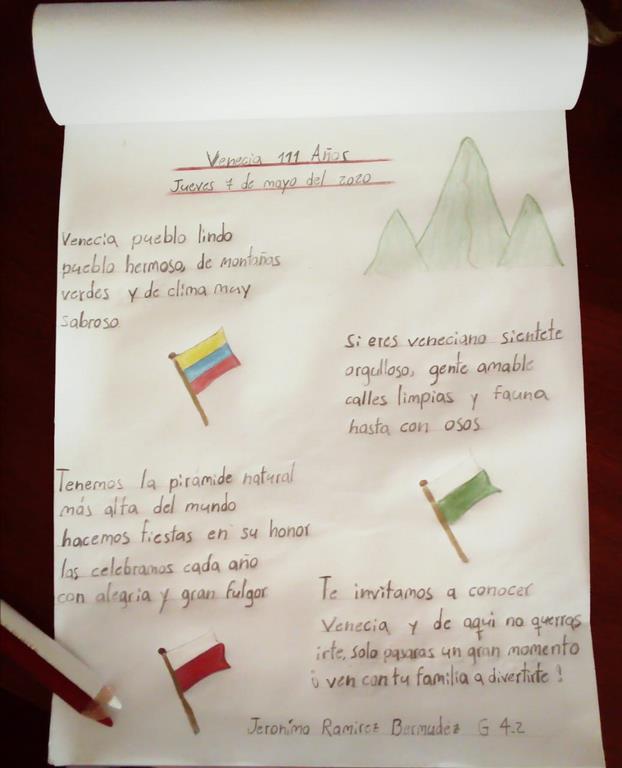 Venecia 111 Años
Jueves 7 de mayo del 2020
Venecia pueblo lindo
pueblo hermoso, de montañas
verdes y de clima muy
sabroso
Si eres veneciano sientete
orgulloso, gente amable
calles limpias y fauna
hasta con osos
Tenemos la pirámide natural
más alta del mundo
hacemos fiestas en su honor
las celebramos cada año
con alegria y gran fulgor
Te invitamos a conocer
Venecia y de aqui no querras
irte, solo pasaras un gran momento
¡ ven con tu familia a divertirte !
Jeronimo Ramirez Bermudez G 4.2